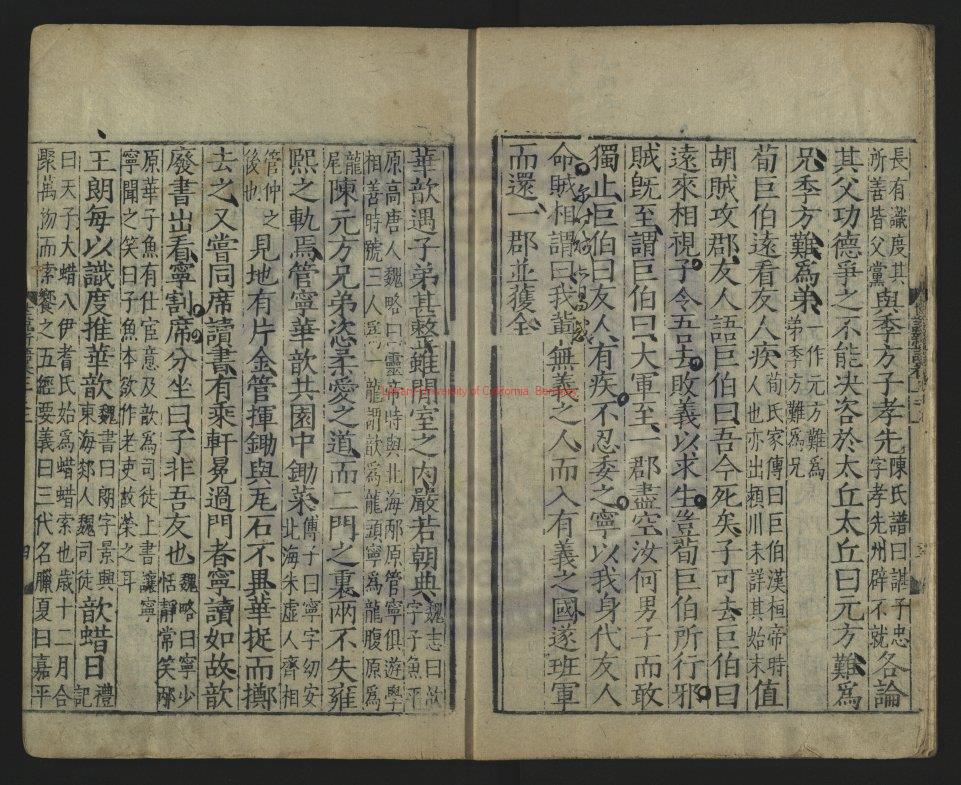 長有識度其
所善皆父黨
與季方子孝先
陳氏譜曰諶子忠
字孝先州辟不就
各論
其父功德爭之不能决咨於太丘太丘曰元方難為
兄季方難為弟
一作元方難為
弟季方難為兄
荀巨伯遠看友人疾
荀氏家傳曰巨伯漢桓帝時
人也亦出頴川未詳其始末
值
胡賊攻郡友人語巨伯曰吾今死矣子可去巨伯曰
遠來相視子令吾去敗義以求生豈荀巨伯所行邪
賊既至謂巨伯曰大軍至一郡盡空汝何男子而敢
獨止巨伯曰友人有疾不忍委之寧以我身代友人
命賊相謂曰我輩無義之人而入有義之國遂班軍
而還一郡並獲全
華歆遇子弟甚整雖閒室之内嚴若朝典
魏志曰歆
字子魚平
原高唐人魏略曰靈帝時與北海邴原管寧俱遊學
相善時號三人為一龍謂歆為龍頭寧為龍腹原為
龍
尾
陳元方兄弟恣柔愛之道而二門之裏兩不失雍
熙之軌焉管寧華歆共園中鋤菜
傅子曰寧字幼安
北海朱虚人齊相
管仲之
後也
見地有片金管揮鋤與瓦石不異華捉而擲
去之又嘗同席讀書有乘軒冕過門者寧讀如故歆
廢書出看寧割席分坐曰子非吾友也
魏略曰寧少
恬靜常笑邴
原華子魚有仕宦意及歆為司徒上書讓寧
寧聞之笑曰子魚本欲作老吏故榮之耳
王朗每以識度推華歆
魏書曰朗字景興
東海郯人魏司徒
歆蜡日
禮
記
曰天子大蜡八伊耆氏始為蜡蜡索也歲十二月合
聚萬物而索饗之五經要義曰三代名臘夏曰嘉平
Library University of California, Berkeley